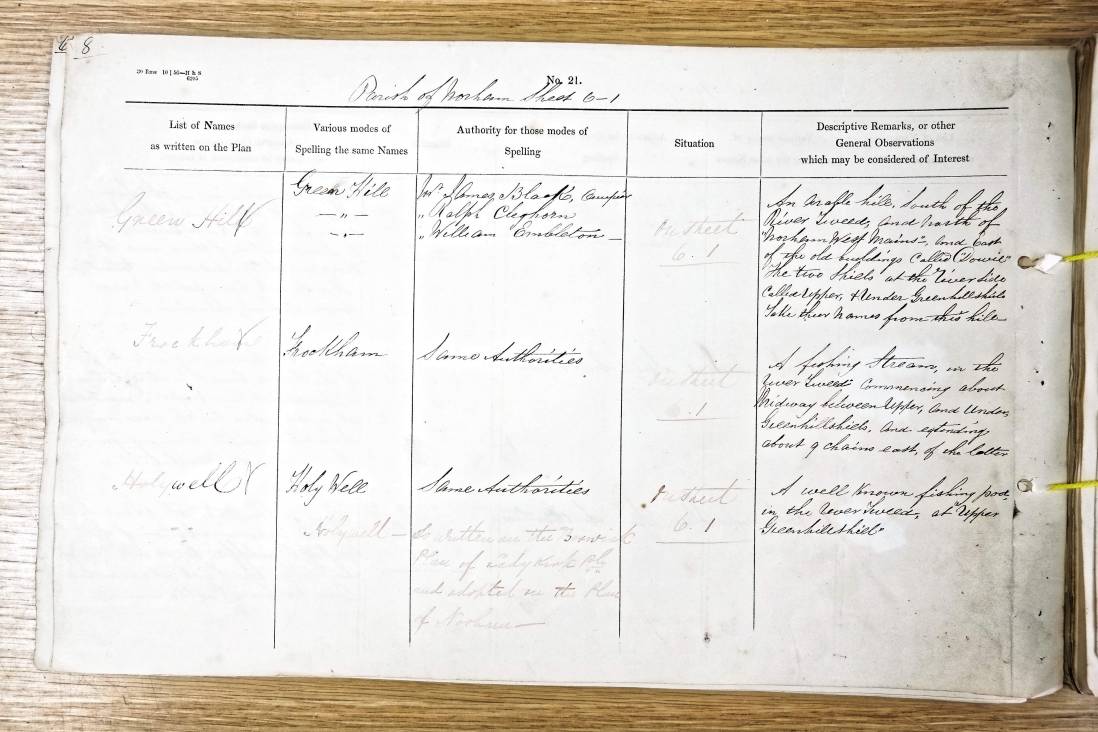 8
No. 21.
Parish of Norham Sheet 6-1
List of Names
as written on the Plan
Various modes of
Spelling the same Names
Authority for those modes of
Spelling
Situation
Descriptive Remarks, or other
General Observations
which may be considered of Interest
Green Hill
Green Hill
— „ —
— „ —
Mr. James Black,
„ Ralph Cleghorn
„ William Embleton
On Sheet
6. 1
An arable hill, South of the
River Tweed, and North of
"Norham West Mains", and East
of the old buildings Called
The two Shiels at the River side
Called Upper, & Under Greenhillshiels
Take their Names from this hill
Frockham
Frockham
Same Authorities
On Sheet
6. 1
A fishing Stream, in the
River Tweed Commencing about
Midway between Upper, and Under
Greenhillshiels, and extending
about 9 chains east, of the latter
Holywell
Holy Well
Same Authorities
On Sheet
6. 1
A well Known fishing pool,
in the River Tweed, at "Upper
Greenhillshiel"
Holywell —
So written on the Berwick
Plan of Ladykirk Ph
and adopted on the Plan
of Norham —